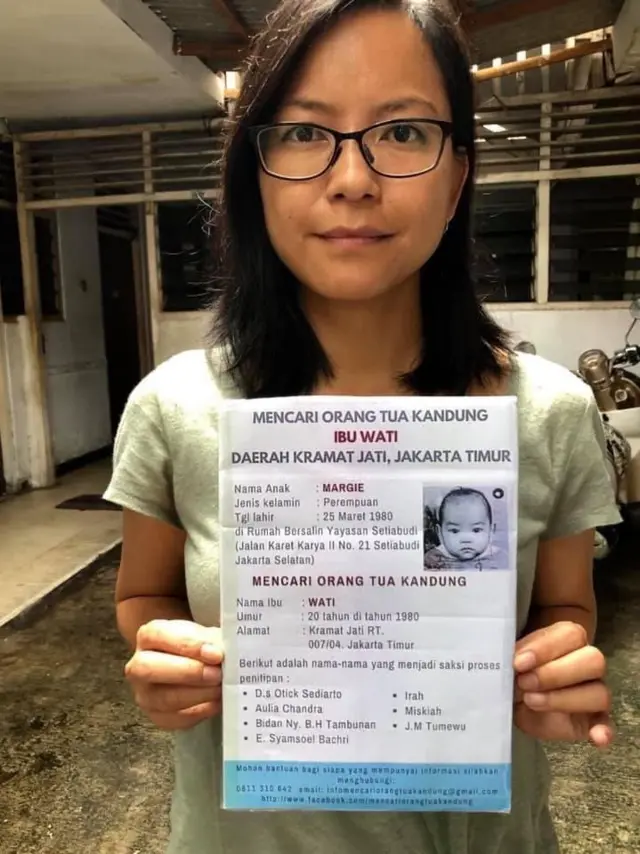 MENCARI ORANG TUA KANDUNG
IBU WATI
DAERAH KRAMAT JATI, JAKARTA TIMUR
Nama Anak : MARGIE
Jenis kelamin : Perempuan
Tgl lahir : 25 Maret 1980
di Rumah Bersalin Yayasan Setiabudi
(Jalan Karet Karya II No. 21 Setiabudi
Jakarta Selatan)
MENCARI ORANG TUA KANDUNG
Nama Ibu : WATI
Umur : 20 tahun di tahun 1980
Alamat : Kramat Jati RT.
007/04. Jakarta Timur
Berikut adalah nama-nama yang menjadi saksi proses
penitipan :
• D.s Otick Sediarto
• Aulia Chandra
• Bidan Ny. B.H Tambunan
• E. Syamsoel Bachri
• Irah
• Miskiah
• J.M Tumewu
Mohon bantuan bagi siapa yang mempunyai informasi silahkan
menghubungi:
email: infomencariorangtuakandung@gmail.com
http://www.facebook.com/mencariorangtuakandung